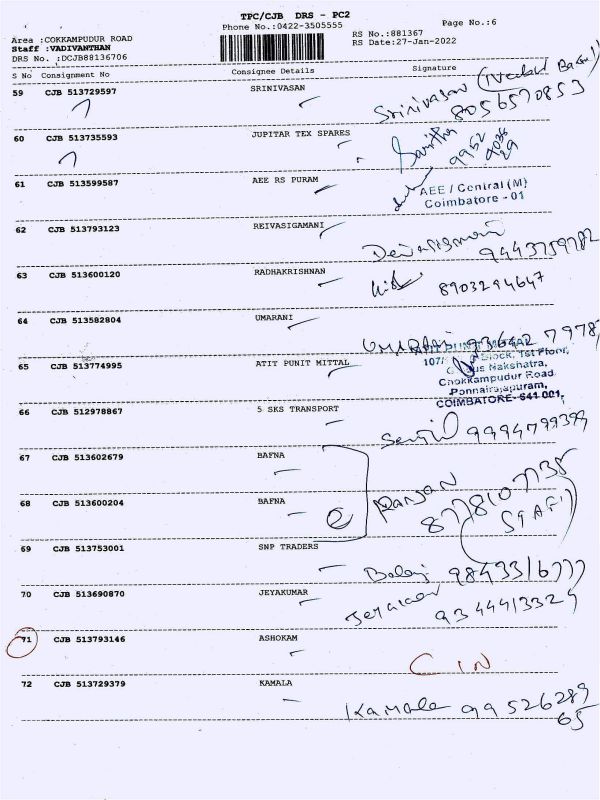 TPC/CJB DRS - PC2
Phone No.:0422-3505555
Page No.:6
Area :COKKAMPUDUR ROAD
Staff :VADIVANTHAN
DRS No. :DCJB88136706
RS No.:881367
RS Date:27-Jan-2022
S No Consignment No Consignee Details Signature
59 CJB 513729597 SRINIVASAN
Srinivasan
8056570853
60 CJB 513735593 JUPITAR TEX SPARES
Savitha
61 CJB 513599587 AEE RS PURAM
AEE / Central (M)
Coimbatore - 01
62 CJB 513793123 REIVASIGAMANI
63 CJB 513600120 RADHAKRISHNAN
8903294647
64 CJB 513582804 UMARANI
65 CJB 513774995 ATIT PUNIT MITTAL
ATIT PUNIT MITTAL
Block, 1st Floor,
Nakshatra,
Chokkampudur Road
Ponnairajapuram,
COIMBATORE-641 001.
66 CJB 512978867 5 SKS TRANSPORT
9994799399
67 CJB 513602679 BAFNA
68 CJB 513600204 BAFNA
Ranjan
(STAFF)
69 CJB 513753001 SNP TRADERS
Balaji
70 CJB 513690870 JEYAKUMAR
9344413329
71 CJB 513793146 ASHOKAM
CIN
72 CJB 513729379 KAMALA
Kamala 99526289
65